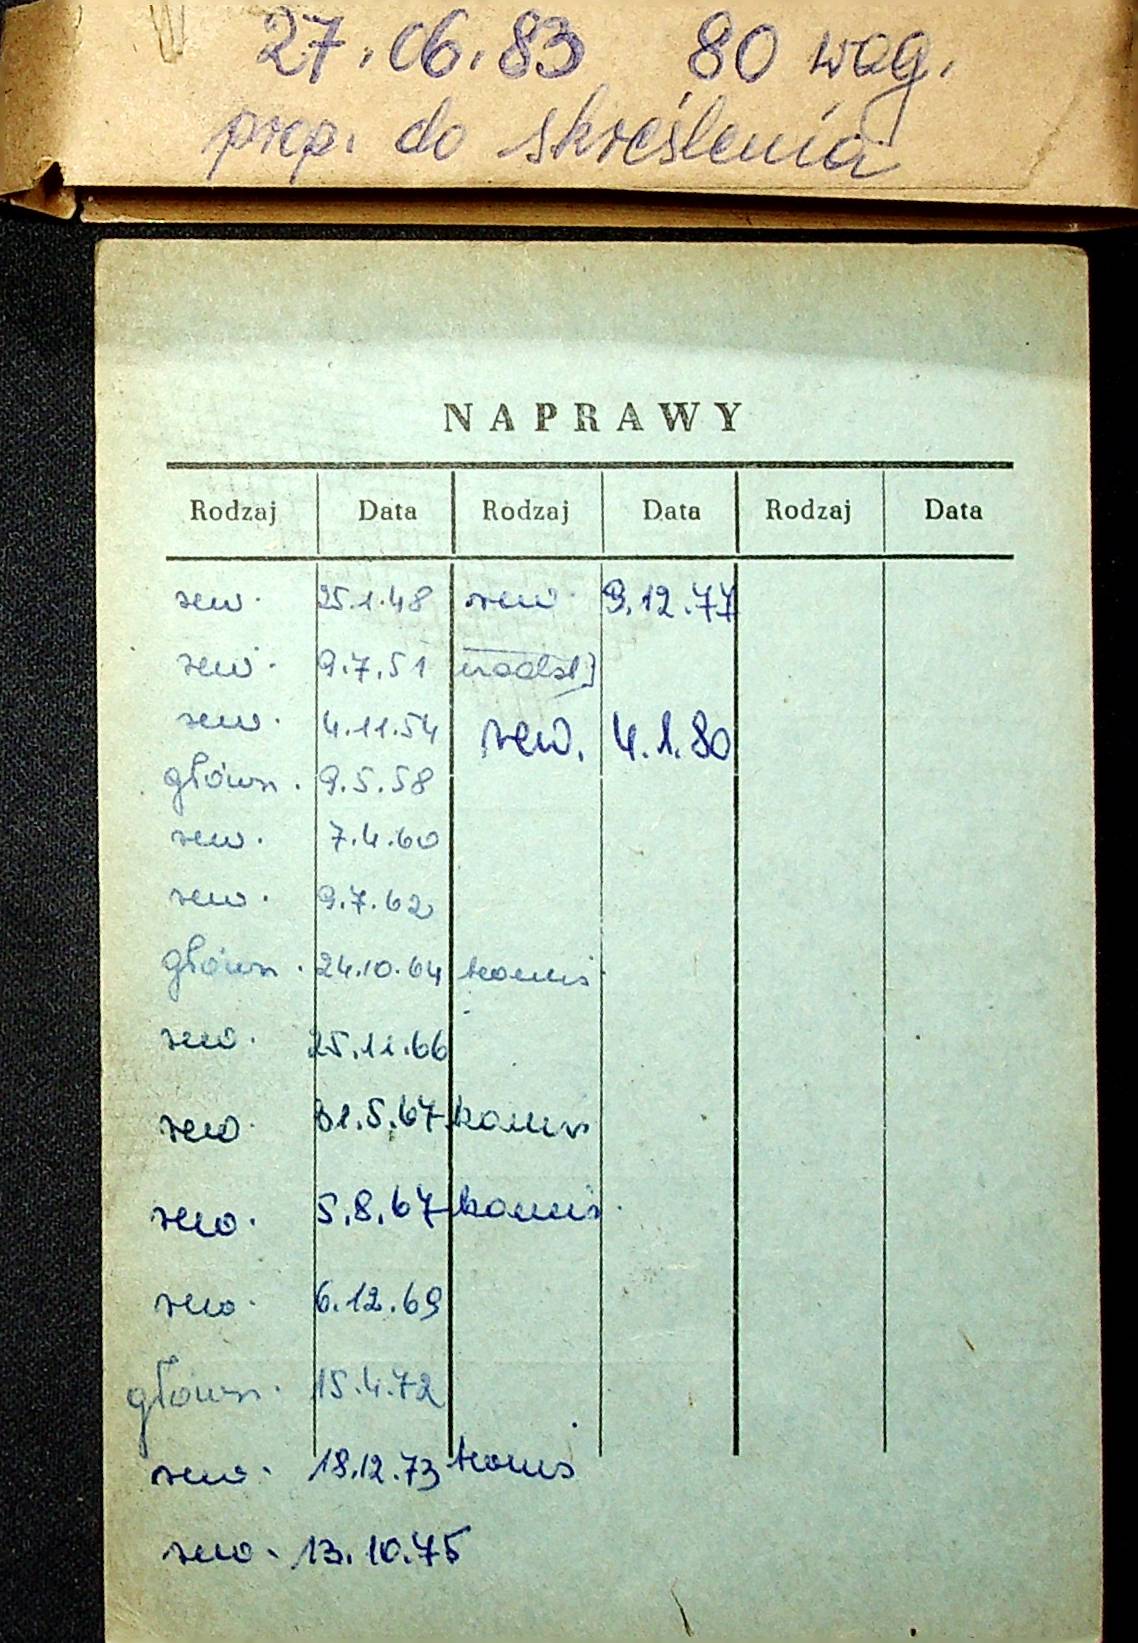 27.06.83 80 wag.
prop. do skreślenia
NAPRAWY
Rodzaj Data Rodzaj Data Rodzaj Data
rew. 25.1.48 rew. 9.12.77
rew. 9.7.51
rew. 4.11.54 rew. 4.1.80
główn. 9.5.58
rew. 7.4.60
rew. 9.7.62
główn. 24.10.64 komis
rew. 25.11.66
rew. 31.5.67 komis
rew. 5.8.67 komis.
rew. 6.12.69
główn. 15.4.72
rew. 18.12.73 komis
rew. 13.10.75